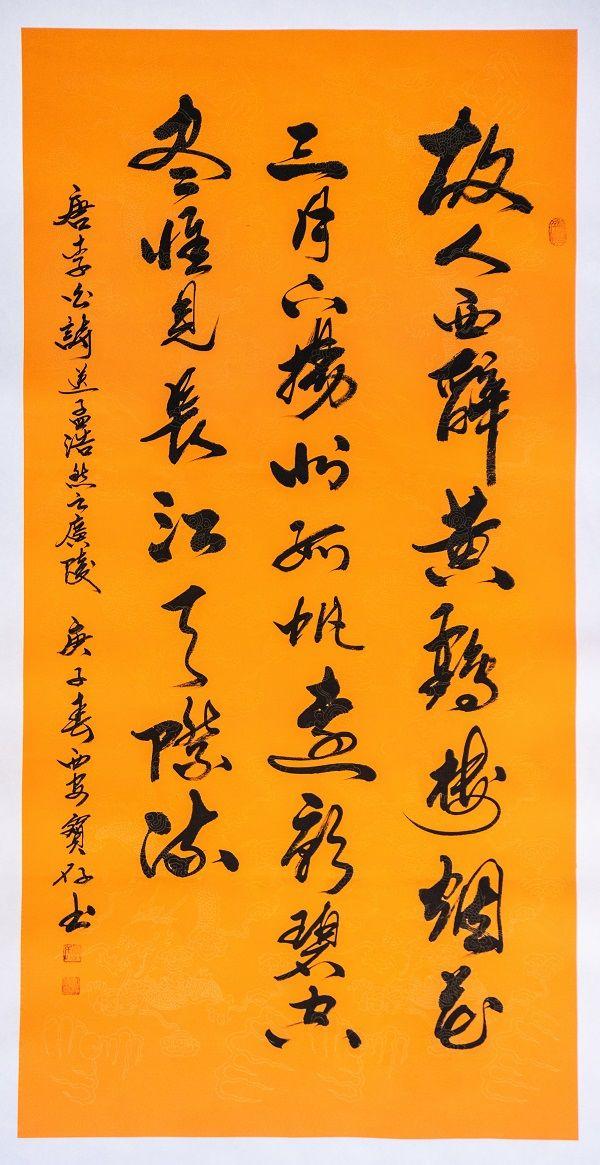 故人西辭黄鶴楼烟花
三月下揚州孤帆遠影碧空
尽惟見長江天際流
唐李白詩送孟浩然之廣陵 庚子春西安寶存书